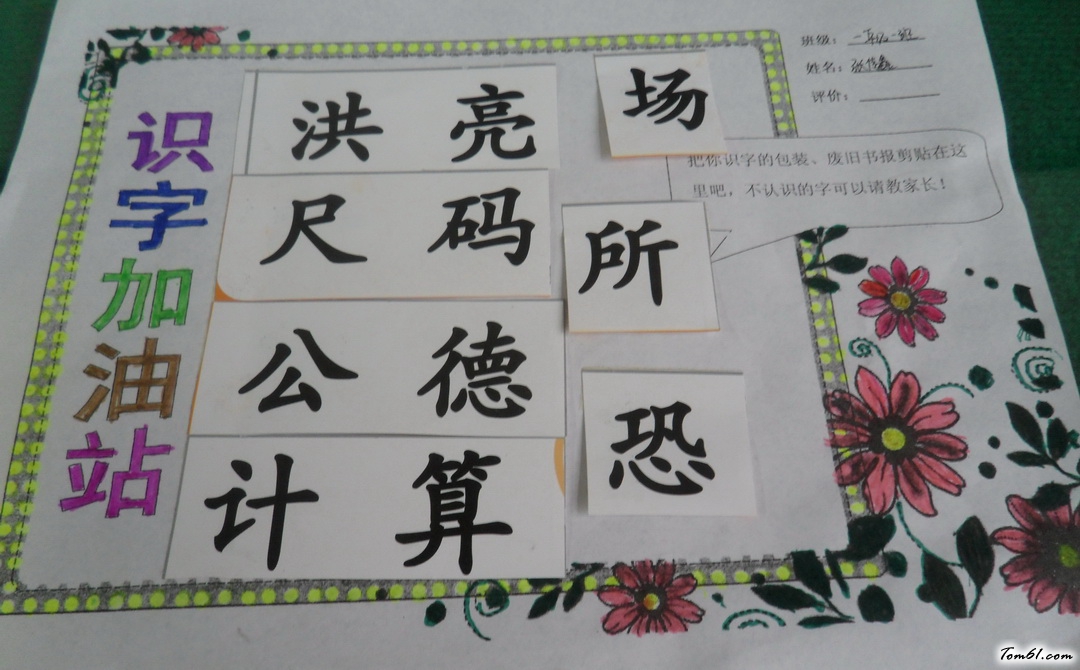 班级：一年级一班
姓名：张
评价：
识字加油站
洪亮
场
把你识字的包装、废旧书报剪贴在这
里吧，不认识的字可以请教家长！
尺码
所
公德
恐
计算
Tom61.com